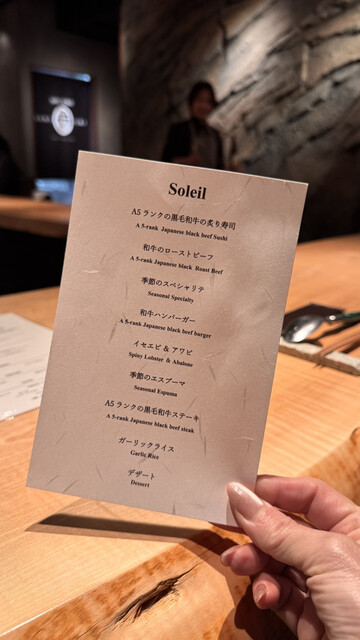 Soleil
A5 ランクの黒毛和牛の炙り寿司
A 5-rank Japanese black beef Sushi
和牛のローストビーフ
A 5-rank Japanese black Roast Beef
季節のスペシャリテ
Seasonal Specialty
和牛ハンバーガー
A 5-rank Japanese black beef burger
イセエビ & アワビ
Spiny Lobster & Abalone
季節のエスプーマ
Seasonal Espuma
A5 ランクの黒毛和牛ステーキ
A 5-rank Japanese black beef steak
ガーリックライス
Garlic Rice
デザート
Dessert